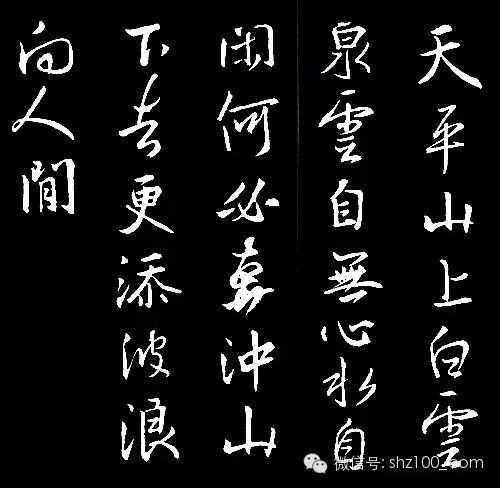 天平山上白雲
泉雲自無心水自
閑何必奔沖山
下去更添波浪
向人間
微信号: shz100_com